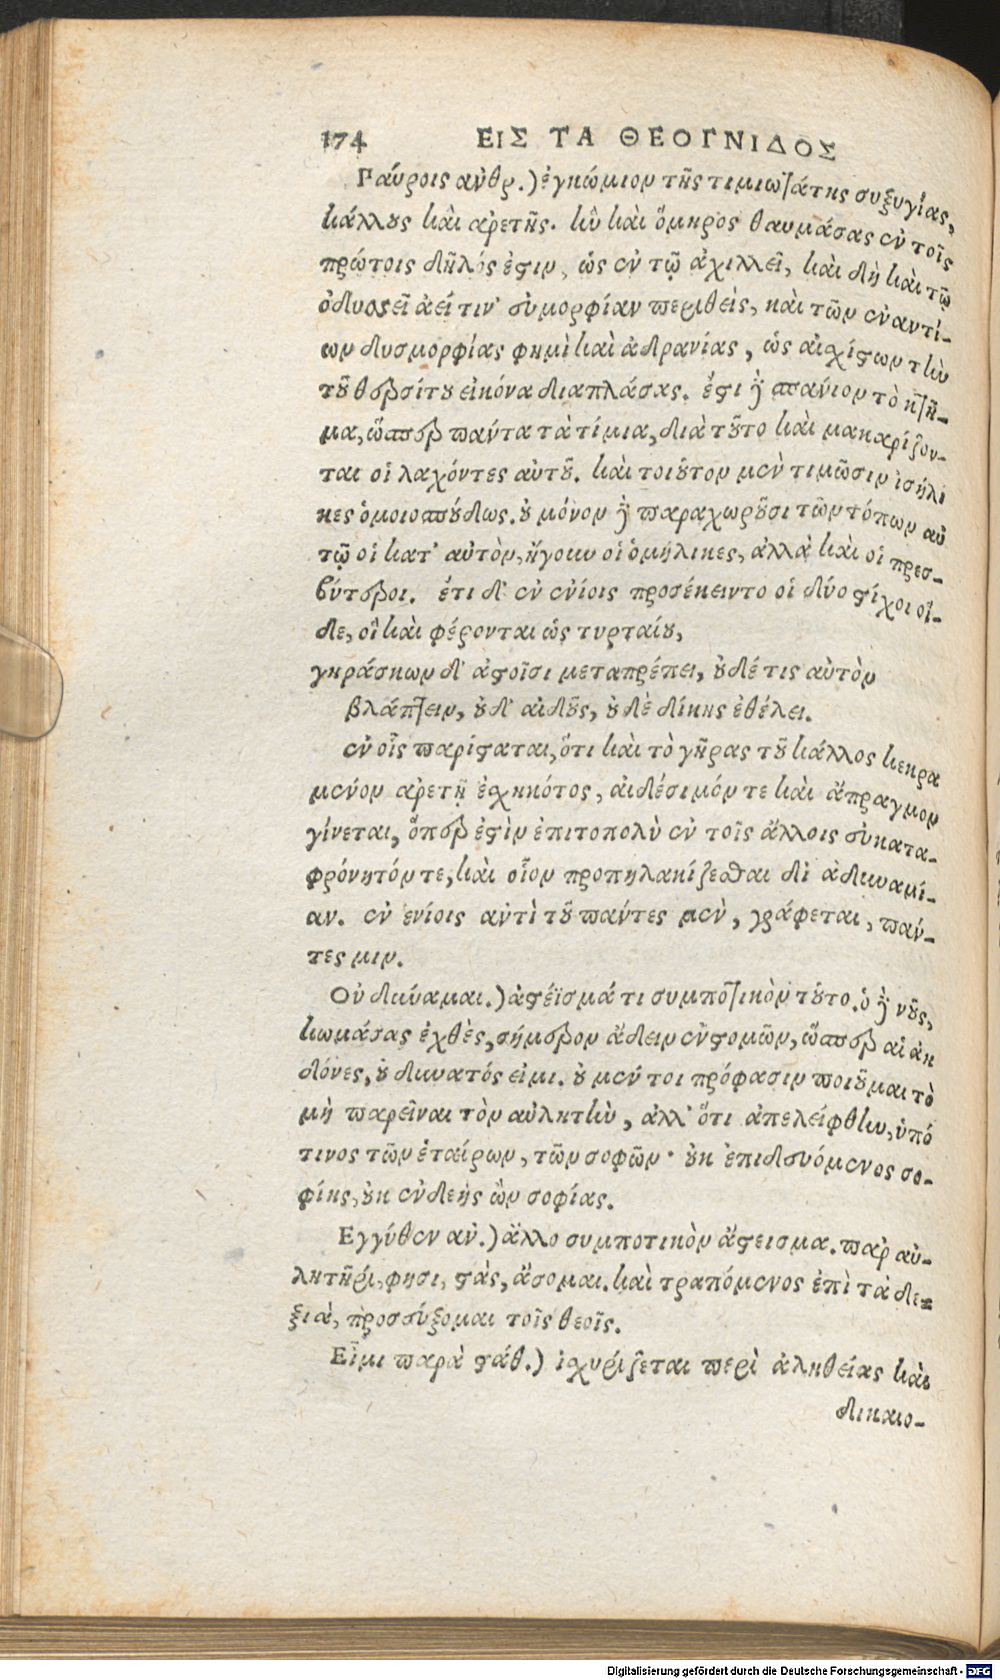 174 ΕΙΣ ΤΑ ΘΕΟΓΝΙΔΟΣ
Γαύροις ἀνθρ.) ἐγκώμιον τῆς τιμιωτάτης συζυγίας,
κάλλους καὶ ἀρετῆς. ἣν καὶ ὅμηρος θαυμάσας ἐν τοῖς
πρώτοις δῆλός ἐστιν, ὡς ἐν τῷ ἀχιλλεῖ, καὶ δὴ καὶ τῷ
ὀδυσσεῖ ἀεί τιν' εὐμορφίαν περιθεὶς, καὶ τῶν ἐναντί-
ων δυσμορφίας φημὶ καὶ ἀδρανίας, ὡς αἰσχίστων τὴν
τοῦ θερσίτου εἰκόνα διαπλάσας. ἔστι δὲ σπάνιον τὸ κτῆ-
μα, ὥσπερ πάντα τὰ τίμια, διὰ τοῦτο καὶ μακαρίζον-
ται οἱ λαχόντες αὐτοῦ. καὶ τοιοῦτον μὲν τιμῶσιν ἰσήλι
κες ὁμοιοσπούδως. οὐ μόνον δὲ παραχωροῦσι τῶν τόπων αὐ
τῷ οἱ κατ' αὐτὸν, ἤγουν οἱ ὁμήλικες, ἀλλὰ καὶ οἱ πρεσ-
βύτεροι. ἔτι δ' ἐν ἐνίοις προσέκειντο οἱ δύο στίχοι οἵ-
δε, οἳ καὶ φέρονται ὡς τυρταίου,
γηράσκων δ' ἀστοῖσι μεταπρέπει, οὐδέ τις αὐτὸν
βλάπτειν, οὐδ' αἰδοῦς, οὐδὲ δίκης ἐθέλει.
ἐν οἷς παρίσταται, ὅτι καὶ τὸ γῆρας τοῦ κάλλος κεκρα
μένον ἀρετῇ ἐσχηκότος, αἰδέσιμόν τε καὶ ἄπραγμον
γίνεται, ὅπερ ἐστὶν ἐπιτοπολὺ ἐν τοῖς ἄλλοις εὐκατα-
φρόνητόν τε, καὶ οἷον προπηλακίζεσθαι δι ἀδυναμί-
αν. ἐν ἐνίοις ἀντὶ τοῦ πάντες μὲν, γράφεται, πάν-
τες μιν.
Οὐ δύναμαι.) ἀστέϊσμά τι συμποτικὸν τοῦτο. ὁ δὲ νοῦς,
κωμάσας ἐχθὲς, σήμερον ἄδειν εὐστομῶν, ὥσπερ αἱ ἀη
δόνες, οὐ δυνατός εἰμι. οὐ μέν τοι πρόφασιν ποιοῦμαι τὸ
μὴ παρεῖναι τὸν αὐλητὴν, ἀλλ' ὅτι ἀπελείφθην, ὑπό
τινος τῶν ἑταίρων, τῶν σοφῶν· οὐκ ἐπιδευόμενος σο-
φίης, οὐκ ἐνδεὴς ὢν σοφίας.
Εγγύθεν αὐ.) ἄλλο συμποτικὸν ἄστεισμα. παρ αὐ-
λητῆρι, φησι, στὰς, ἄσομαι. καὶ τραπόμενος ἐπὶ τὰ δε-
ξιὰ, προσεύξομαι τοῖς θεοῖς.
Εἶμι παρὰ στάθ.) ἰσχυρίζεται περὶ ἀληθείας καὶ
δικαιο-
Digitalisierung gefördert durch die Deutsche Forschungsgemeinschaft - DFG